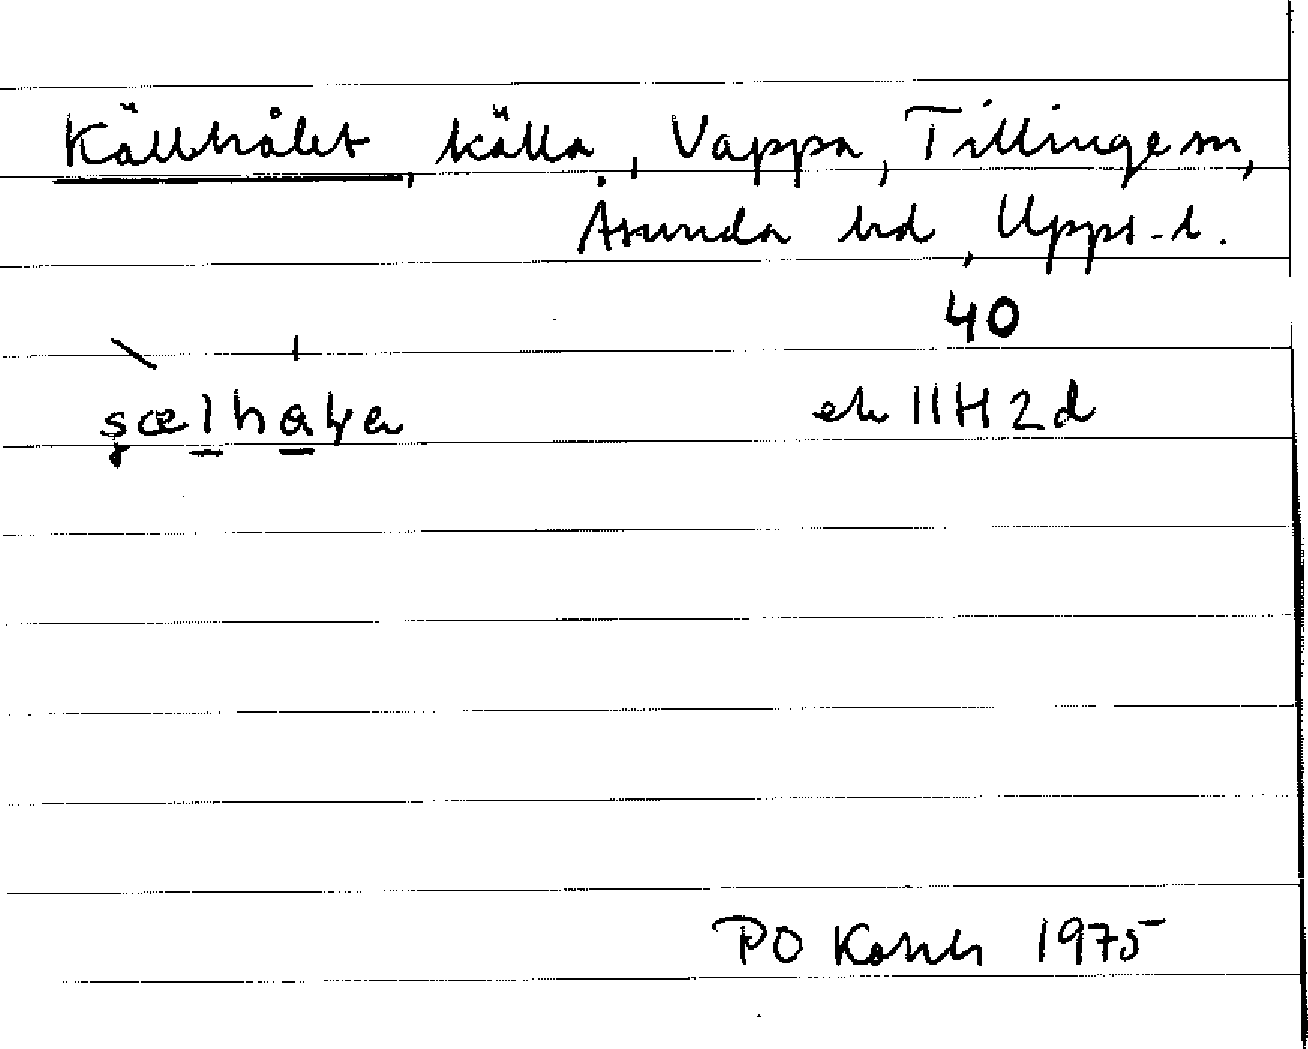 Källhålet, källa, Vappa, Tillinge sn,
Åsunda hd, Upps-l.
40
ek 11H2d
PO 1975